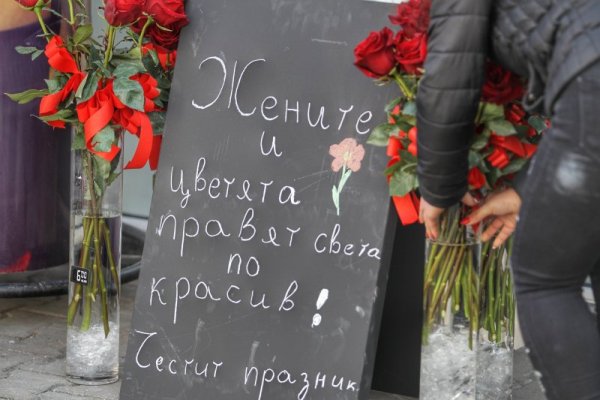 Жените
и
цветята
правят света
по
красив!
Честит празник